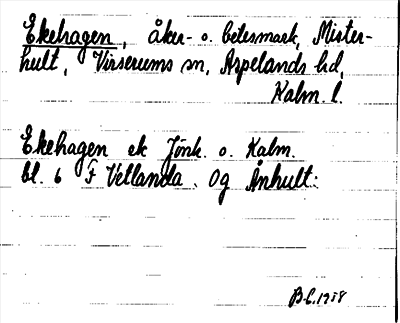 Ekehagen, åker- o. betesmark, Mister-
hult, Virserums sn, Aspelands hd,
Kalm. l.
Ekehagen ek Jönk. o. Kalm.
bl. 6 F Vetlanda. Og Ånhult:
B.L. 1958